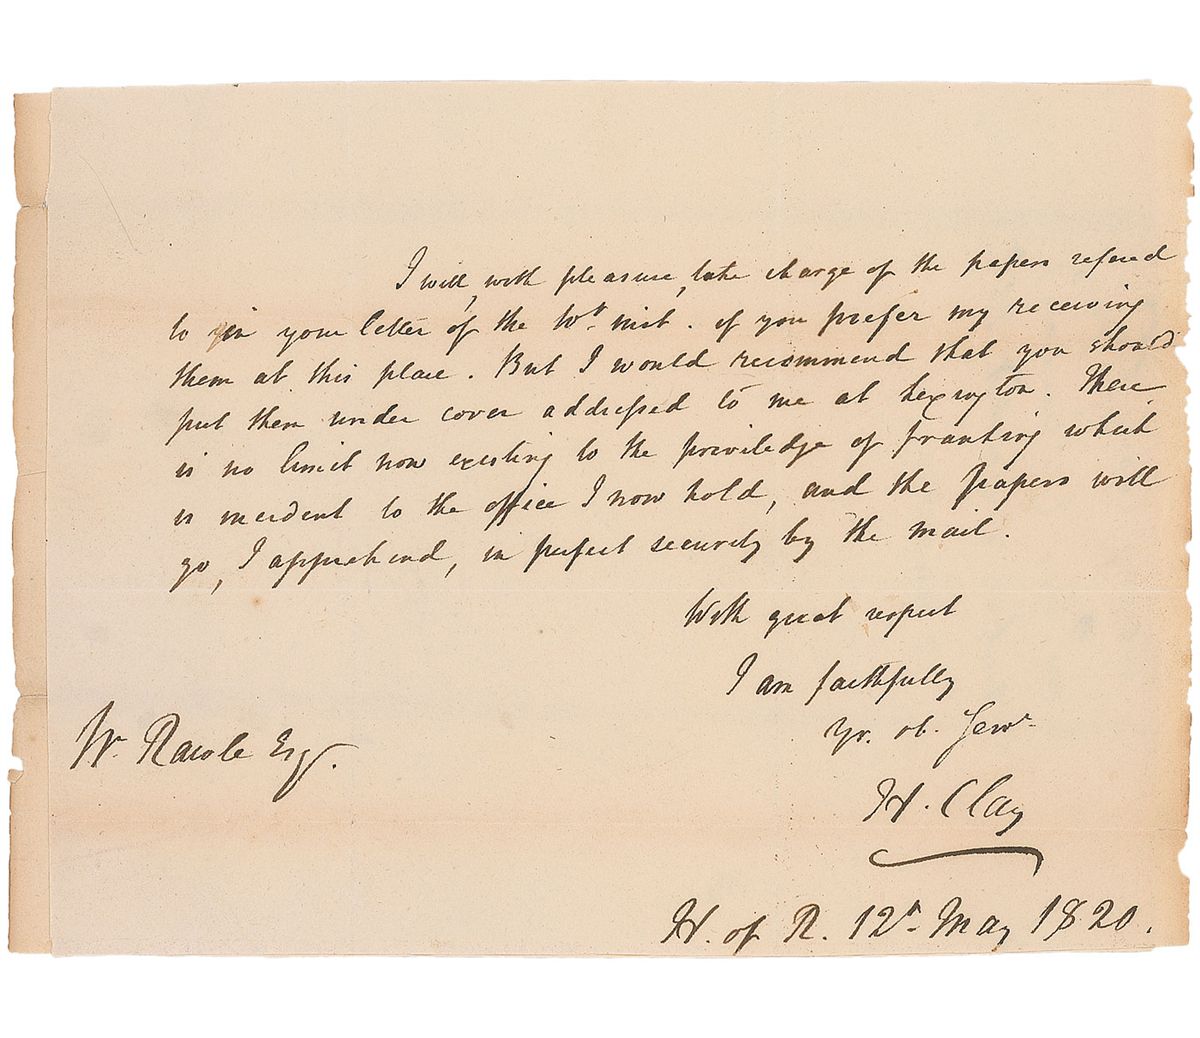 I will, with pleasure, take charge of the papers refered
to in your letter of the 10t. inst. if you prefer my receiving
them at this place. But I would recommend that you should
put them under cover addressed to me at Lexington. There
is no limit now existing to the priviledge of franking which
is incident to the office I now hold, and the papers will
go, I apprehend, in perfect security by the mail.
With great respect
I am faithfully
Yr. ob. Serv.
Wm Rawle Esqr.
H. Clay
H. of R. 12h. May 1820.